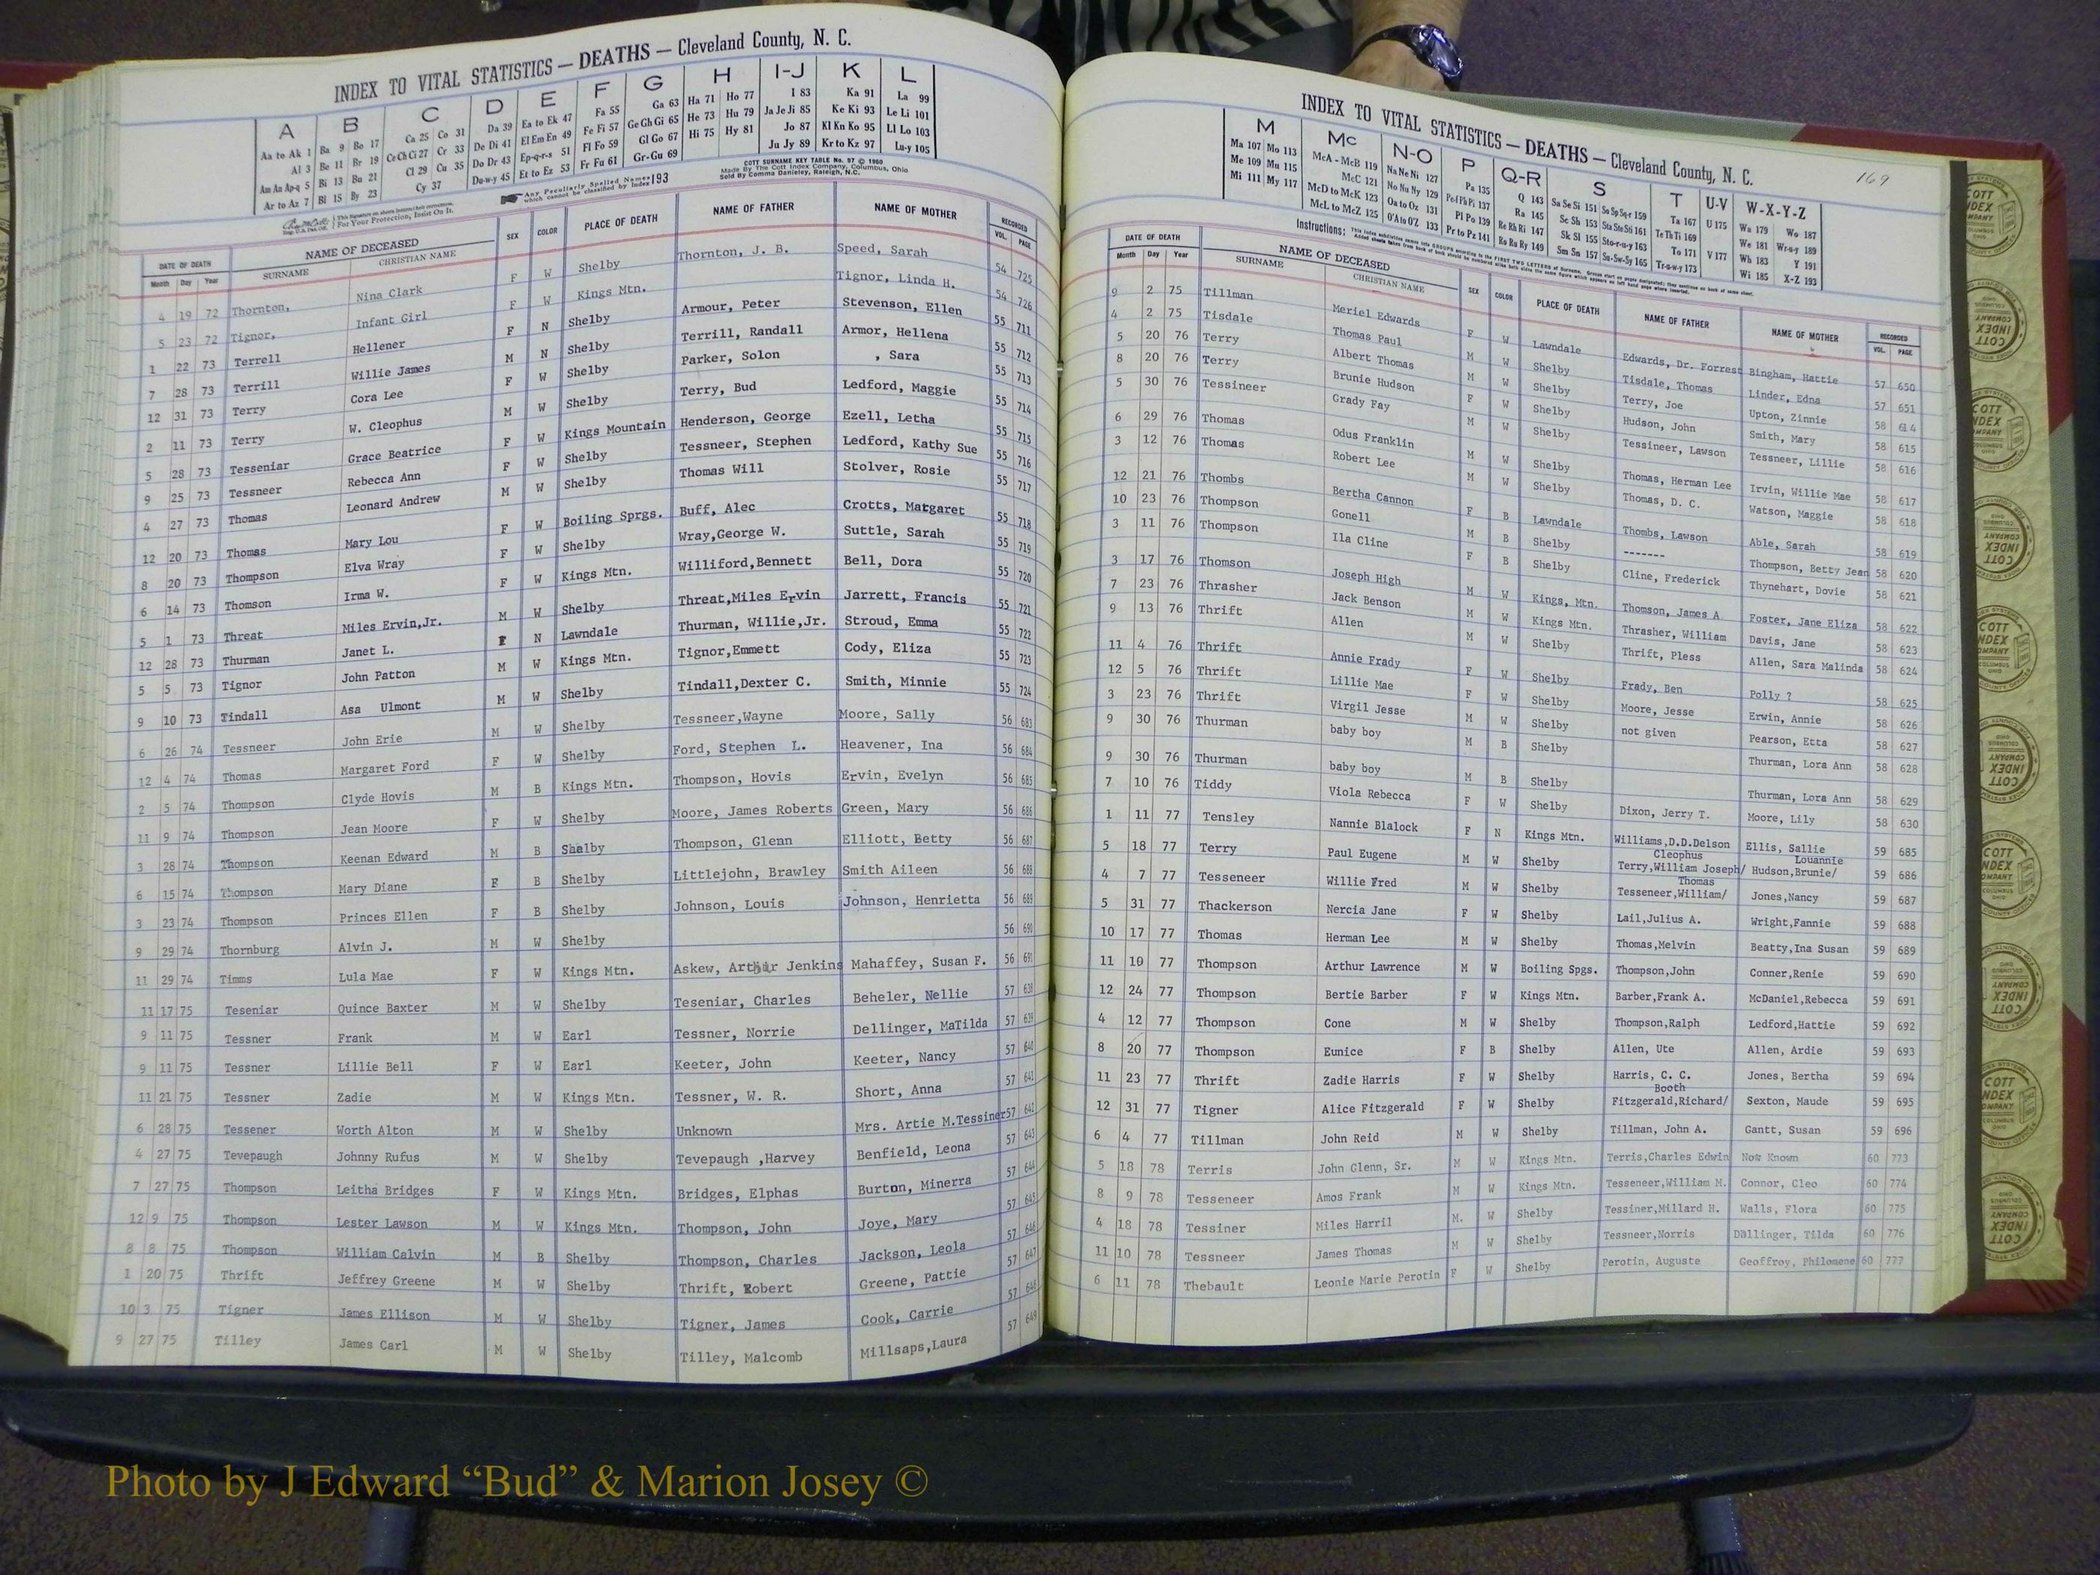 INDEX TO VITAL STATISTICS — DEATHS — Cleveland County, N. C.
A B C D E F G H I-J K L
Aa to Ak 1 Ba 9 Bo 17 Ca 25 Co 31 Da 39 Ea to Ek 47 Fa 55 Ga 63 Ha 71 Ho 77 I 83 Ka 91 La 99
Al 3 Be 11 Br 19 Ce Ch Ci 27 Cr 33 De Di 41 El Em En 49 Fe Fi 57 Ge Gh Gi 65 He 73 Hu 79 Ja Je Ji 85 Ke Ki 93 Le Li 101
Am An Ap-q 5 Bi 13 Bu 21 Cl 29 Cu 35 Do Dr 43 Ep-q-r-s 51 Fl Fo 59 Gl Go 67 Hi 75 Hy 81 Jo 87 Kl Kn Ko 95 Ll Lo 103
Ar to Az 7 Bl 15 By 23 Cy 37 Du-w-y 45 Et to Ez 53 Fr Fu 61 Gr-Gu 69 Ju Jy 89 Kr to Kz 97 Lu-y 105
Any Peculiarly Spelled Names which cannot be classified by Index 193
COTT SURNAME KEY TABLE No. 97 © 1960
Made By The Cott Index Company, Columbus, Ohio
Sold By Comma Danieley, Raleigh, N.C.
For Your Protection, Insist On It.
DATE OF DEATH NAME OF DECEASED SEX COLOR PLACE OF DEATH NAME OF FATHER NAME OF MOTHER RECORDED
Month Day Year SURNAME CHRISTIAN NAME VOL. PAGE
4 19 72 Thornton, Nina Clark F W Shelby Thornton, J. B. Speed, Sarah 54 725
5 23 72 Tignor, Infant Girl F W Kings Mtn. Tignor, Linda H. 54 726
1 22 73 Terrell Hellener F N Shelby Armour, Peter Stevenson, Ellen 55 711
7 28 73 Terrill Willie James M N Shelby Terrill, Randall Armor, Hellena 55 712
12 31 73 Terry Cora Lee F W Shelby Parker, Solon , Sara 55 713
2 11 73 Terry W. Cleophus M W Shelby Terry, Bud Ledford, Maggie 55 714
5 28 73 Tesseniar Grace Beatrice F W Kings Mountain Henderson, George Ezell, Letha 55 715
9 25 73 Tessneer Rebecca Ann F W Shelby Tessneer, Stephen Ledford, Kathy Sue 55 716
4 27 73 Thomas Leonard Andrew M W Shelby Thomas Will Stolver, Rosie 55 717
12 20 73 Thomas Mary Lou F W Boiling Sprgs. Buff, Alec Crotts, Matgaret 55 718
8 20 73 Thompson Elva Wray F W Shelby Wray,George W. Suttle, Sarah 55 719
6 14 73 Thomson Irma W. F W Kings Mtn. Williford,Bennett Bell, Dora 55 720
5 1 73 Threat Miles Ervin,Jr. M W Shelby Threat,Miles Ervin Jarrett, Francis 55 721
12 28 73 Thurman Janet L. F N Lawndale Thurman, Willie,Jr. Stroud, Emma 55 722
5 5 73 Tignor John Patton M W Kings Mtn. Tignor,Emmett Cody, Eliza 55 723
9 10 73 Tindall Asa Ulmont M W Shelby Tindall,Dexter C. Smith, Minnie 55 724
6 26 74 Tessneer John Erie M W Shelby Tessneer,Wayne Moore, Sally 56 683
12 4 74 Thomas Margaret Ford F W Shelby Ford, Stephen L. Heavener, Ina 56 684
2 5 74 Thompson Clyde Hovis M B Kings Mtn. Thompson, Hovis Ervin, Evelyn 56 685
11 9 74 Thompson Jean Moore F W Shelby Moore, James Roberts Green, Mary 56 686
3 28 74 Thompson Keenan Edward M B Shelby Thompson, Glenn Elliott, Betty 56 687
6 15 74 Thompson Mary Diane F B Shelby Littlejohn, Brawley Smith Aileen 56 688
3 23 74 Thompson Princes Ellen F B Shelby Johnson, Louis Johnson, Henrietta 56 689
9 29 74 Thornburg Alvin J. M W Shelby 56 690
11 29 74 Timms Lula Mae F W Kings Mtn. Askew, Arthur Jenkins Mahaffey, Susan F. 56 691
11 17 75 Teseniar Quince Baxter M W Shelby Teseniar, Charles Beheler, Nellie 57 638
9 11 75 Tessner Frank M W Earl Tessner, Norrie Dellinger, MaTilda 57 639
9 11 75 Tessner Lillie Bell F W Earl Keeter, John Keeter, Nancy 57 640
11 21 75 Tessner Zadie M W Kings Mtn. Tessner, W. R. Short, Anna 57 641
6 28 75 Tessener Worth Alton M W Shelby Unknown Mrs. Artie M.Tessiner 57 642
4 27 75 Tevepaugh Johnny Rufus M W Shelby Tevepaugh ,Harvey Benfield, Leona 57 643
7 27 75 Thompson Leitha Bridges F W Kings Mtn. Bridges, Elphas Burton, Minerra 57 644
12 9 75 Thompson Lester Lawson M W Kings Mtn. Thompson, John Joye, Mary 57 645
8 8 75 Thompson William Calvin M B Shelby Thompson, Charles Jackson, Leola 57 646
1 20 75 Thrift Jeffrey Greene M W Shelby Thrift, Robert Greene, Pattie 57 647
10 3 75 Tigner James Ellison M W Shelby Tigner, James Cook, Carrie 57 648
9 27 75 Tilley James Carl M W Shelby Tilley, Malcomb Millsaps,Laura 57 649
INDEX TO VITAL STATISTICS — DEATHS — Cleveland County, N. C.
169
M Mc N-O P Q-R S T U-V W-X-Y-Z
Ma 107 Mo 113 McA - McB 119 Na Ne Ni 127 Pa 135 Q 143 Sa Se Si 151 So Sp Sq-r 159 Ta 167 U 175 Wa 179 Wo 187
Me 109 Mu 115 McC 121 No Nu Ny 129 Pe-f Ph Pi 137 Ra 145 Sc Sh 153 Sta Ste Sti 161 Te Th Ti 169 We 181 Wr-u-y 189
Mi 111 My 117 McD to McK 123 Oa to Oz 131 Pl Po 139 Re Rh Ri 147 Sk Sl 155 Sto-r-u-y 163 To 171 V 177 Wh 183 Y 191
McL to McZ 125 O'A to O'Z 133 Pr to Pz 141 Ro Ru Ry 149 Sm Sn 157 Su-Sw-Sy 165 Tr-u-w-y 173 Wi 185 X-Z 193
Instructions:
DATE OF DEATH NAME OF DECEASED SEX COLOR PLACE OF DEATH NAME OF FATHER NAME OF MOTHER RECORDED
Month Day Year SURNAME CHRISTIAN NAME VOL. PAGE
9 2 75 Tillman Meriel Edwards F W Lawndale Edwards, Dr. Forrest Bingham, Hattie 57 650
4 2 75 Tisdale Thomas Paul M W Shelby Tisdale, Thomas Linder, Edna 57 651
5 20 76 Terry Albert Thomas M W Shelby Terry, Joe Upton, Zinnie 58 614
8 20 76 Terry Brunie Hudson F W Shelby Hudson, John Smith, Mary 58 615
5 30 76 Tessineer Grady Fay M W Shelby Tessineer, Lawson Tessneer, Lillie 58 616
6 29 76 Thomas Odus Franklin M W Shelby Thomas, Herman Lee Irvin, Willie Mae 58 617
3 12 76 Thomas Robert Lee M W Shelby Thomas, D. C. Watson, Maggie 58 618
12 21 76 Thombs Bertha Cannon F B Lawndale Thombs, Lawson Able, Sarah 58 619
10 23 76 Thompson Gonell M B Shelby ------- Thompson, Betty Jean 58 620
3 11 76 Thompson Ila Cline F B Shelby Cline, Frederick Thynehart, Dovie 58 621
3 17 76 Thomson Joseph High M W Kings, Mtn. Thomson, James A. Foster, Jane Eliza 58 622
7 23 76 Thrasher Jack Benson M W Kings Mtn. Thrasher, William Davis, Jane 58 623
9 13 76 Thrift Allen M W Shelby Thrift, Pless Allen, Sara Malinda 58 624
11 4 76 Thrift Annie Frady F W Shelby Frady, Ben Polly ? 58 625
12 5 76 Thrift Lillie Mae F W Shelby Moore, Jesse Erwin, Annie 58 626
3 23 76 Thrift Virgil Jesse M W Shelby not given Pearson, Etta 58 627
9 30 76 Thurman baby boy M B Shelby Thurman, Lora Ann 58 628
9 30 76 Thurman baby boy M B Shelby Thurman, Lora Ann 58 629
7 10 76 Tiddy Viola Rebecca F W Shelby Dixon, Jerry T. Moore, Lily 58 630
1 11 77 Tensley Nannie Blalock F N Kings Mtn. Williams,D.D.Delson Ellis, Sallie 59 685
Cleophus Louannie
5 18 77 Terry Paul Eugene M W Shelby Terry,William Joseph/ Hudson,Brunie/ 59 686
Thomas
4 7 77 Tesseneer Willie Fred M W Shelby Tesseneer,William/ Jones,Nancy 59 687
5 31 77 Thackerson Nercia Jane F W Shelby Lail,Julius A. Wright,Fannie 59 688
10 17 77 Thomas Herman Lee M W Shelby Thomas,Melvin Beatty,Ina Susan 59 689
11 19 77 Thompson Arthur Lawrence M W Boiling Spgs. Thompson,John Conner,Renie 59 690
12 24 77 Thompson Bertie Barber F W Kings Mtn. Barber,Frank A. McDaniel,Rebecca 59 691
4 12 77 Thompson Cone M W Shelby Thompson,Ralph Ledford,Hattie 59 692
8 20 77 Thompson Eunice F B Shelby Allen, Ute Allen, Ardie 59 693
11 23 77 Thrift Zadie Harris F W Shelby Harris, C. C. Jones, Bertha 59 694
Booth
12 31 77 Tigner Alice Fitzgerald F W Shelby Fitzgerald,Richard/ Sexton, Maude 59 695
6 4 77 Tillman John Reid M W Shelby Tillman, John A. Gantt, Susan 59 696
5 18 78 Terris John Glenn, Sr. M W Kings Mtn. Terris,Charles Edwin Not Known 60 773
8 9 78 Tesseneer Amos Frank M W Kings Mtn. Tesseneer,William M. Connor, Cleo 60 774
4 18 78 Tessiner Miles Harril M. W Shelby Tessiner,Millard H. Walls, Flora 60 775
11 10 78 Tessneer James Thomas M W Shelby Tessneer,Norris Dellinger, Tilda 60 776
6 11 78 Thebault Leonie Marie Perotin F W Shelby Perotin, Auguste Geoffroy, Philomene 60 777
COTT INDEX COMPANY COLUMBUS OHIO
Photo by J Edward “Bud” & Marion Josey ©